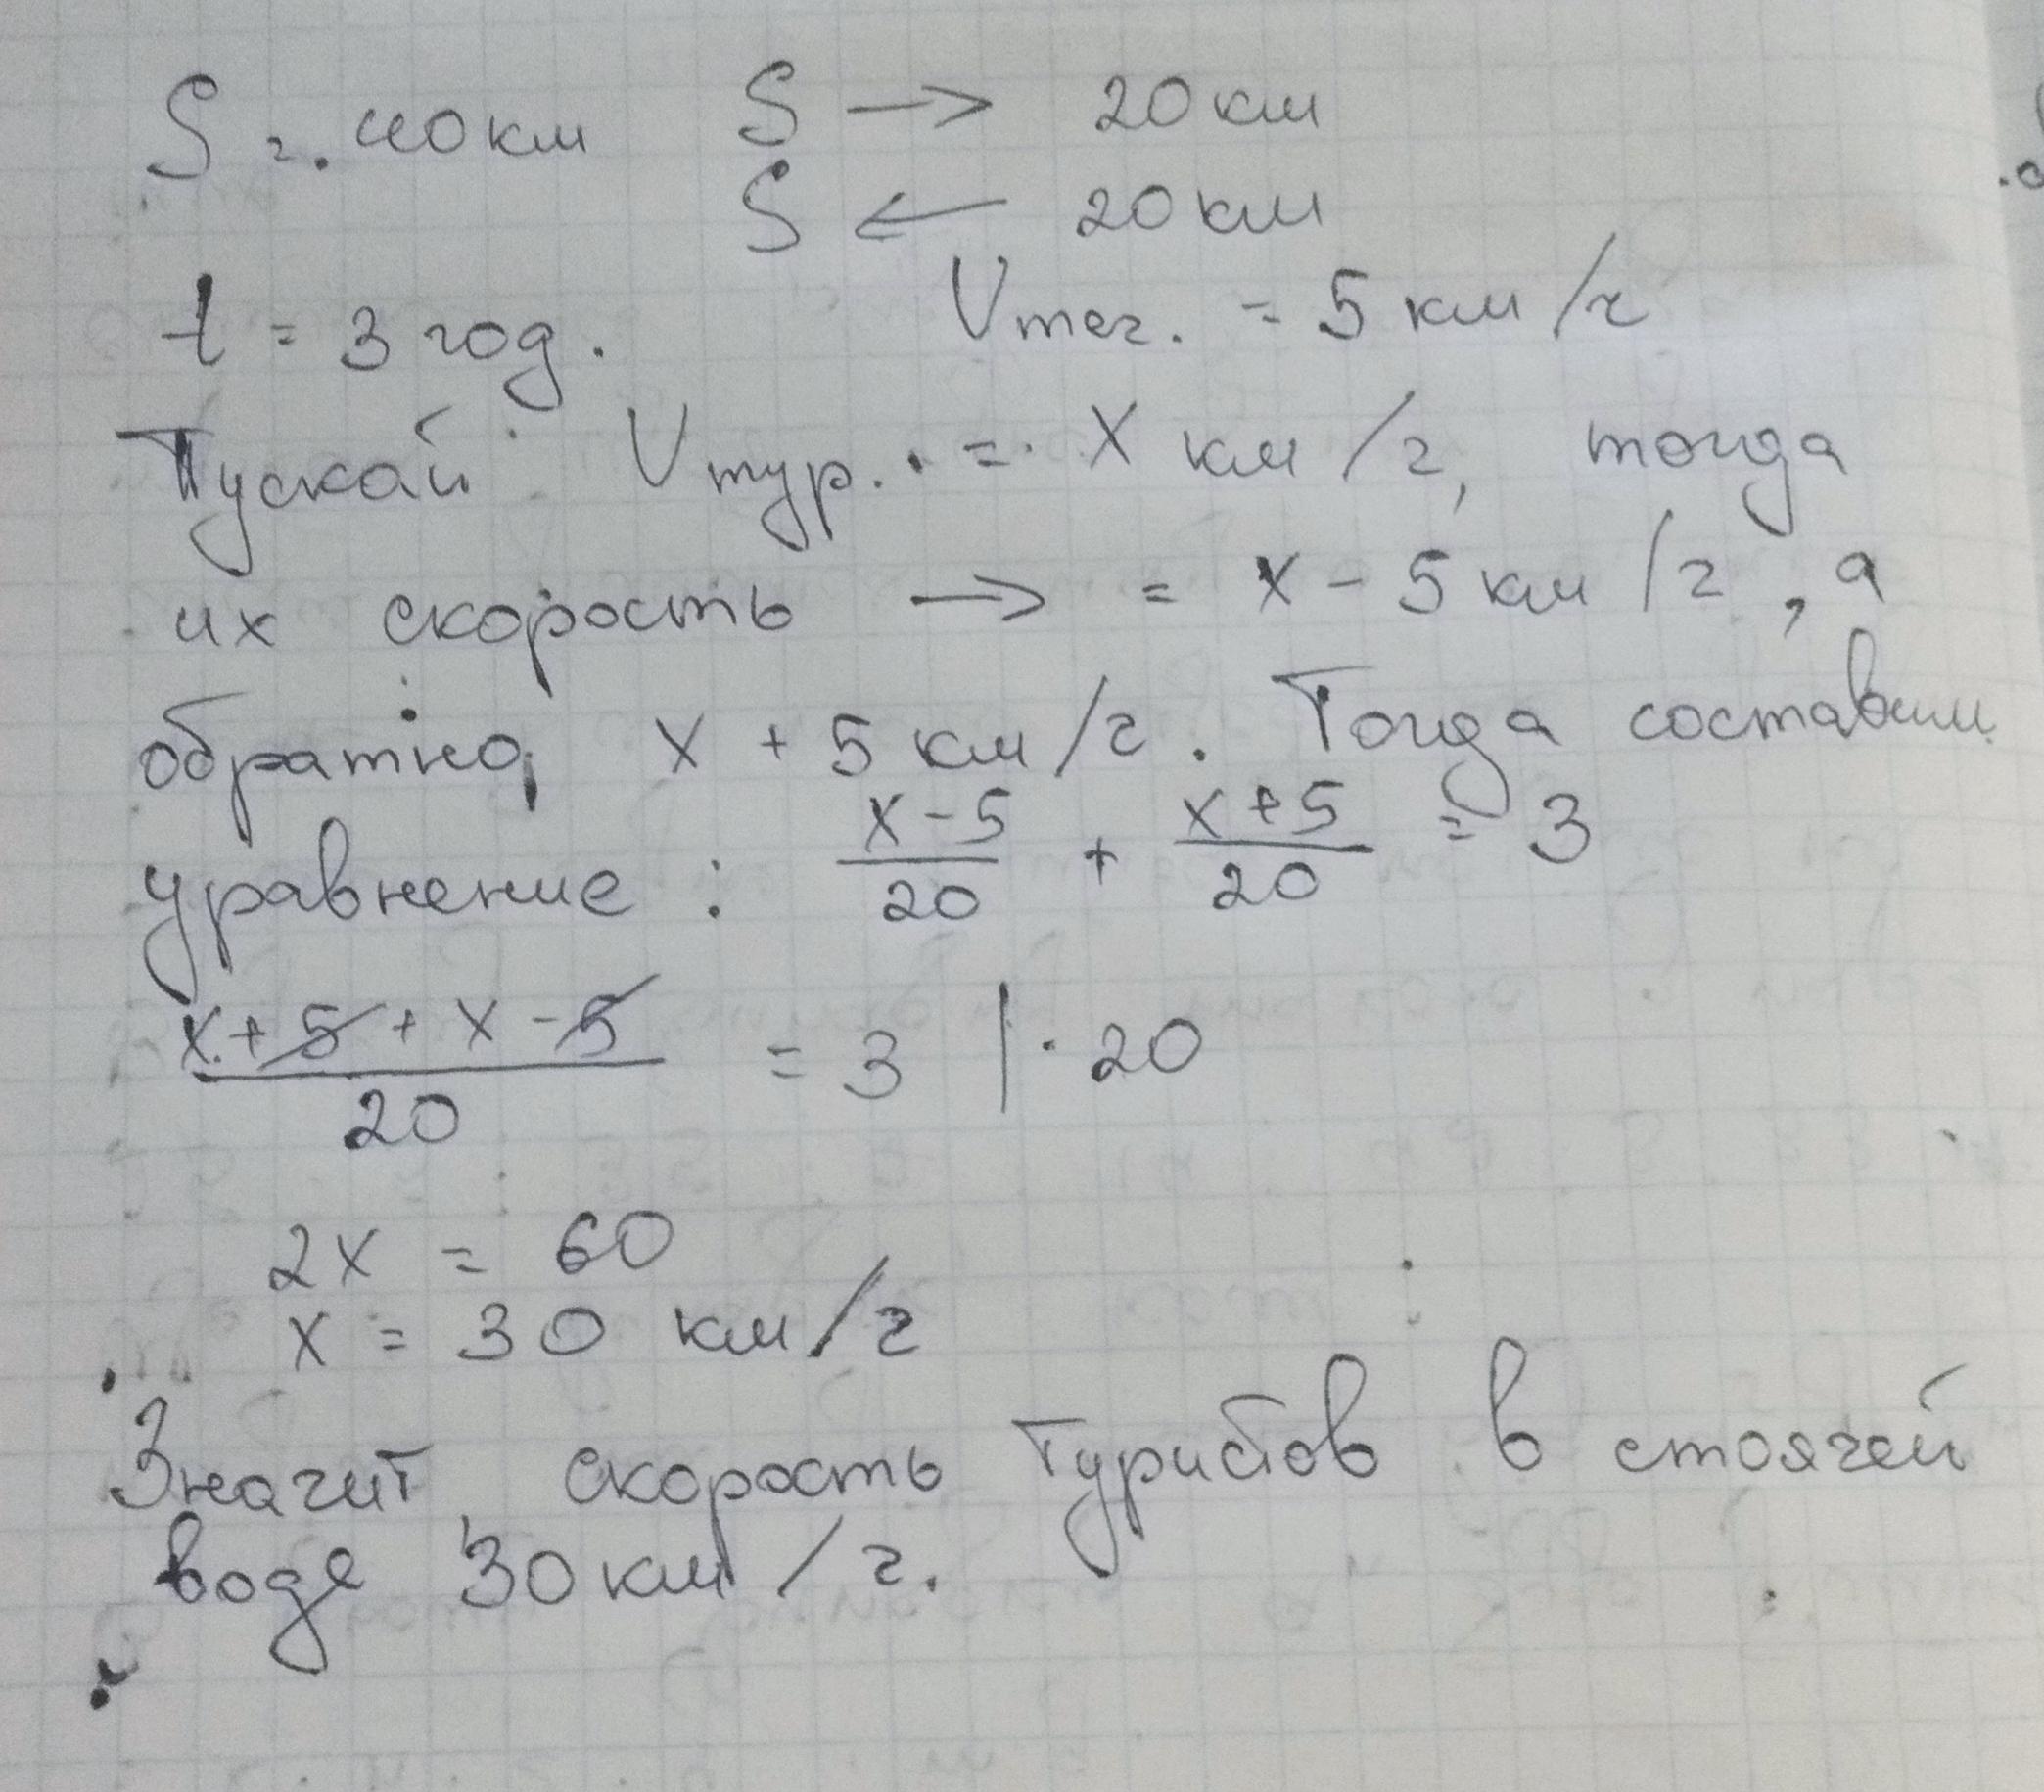 S = 40 км S → 20 км
S ← 20 км
t = 3 год. Vтеч. = 5 км/ч
Пускай Vтур. = x км/г, тогда
их скорость → = x - 5 км/г, а
обратно, x + 5 км/г. Тогда составим
уравнение: (x-5)/20 + (x+5)/20 = 3
(x+5+x-5)/20 = 3 | · 20
2x = 60
x = 30 км/г
Значит скорость туристов в стоячей
воде 30 км/г.